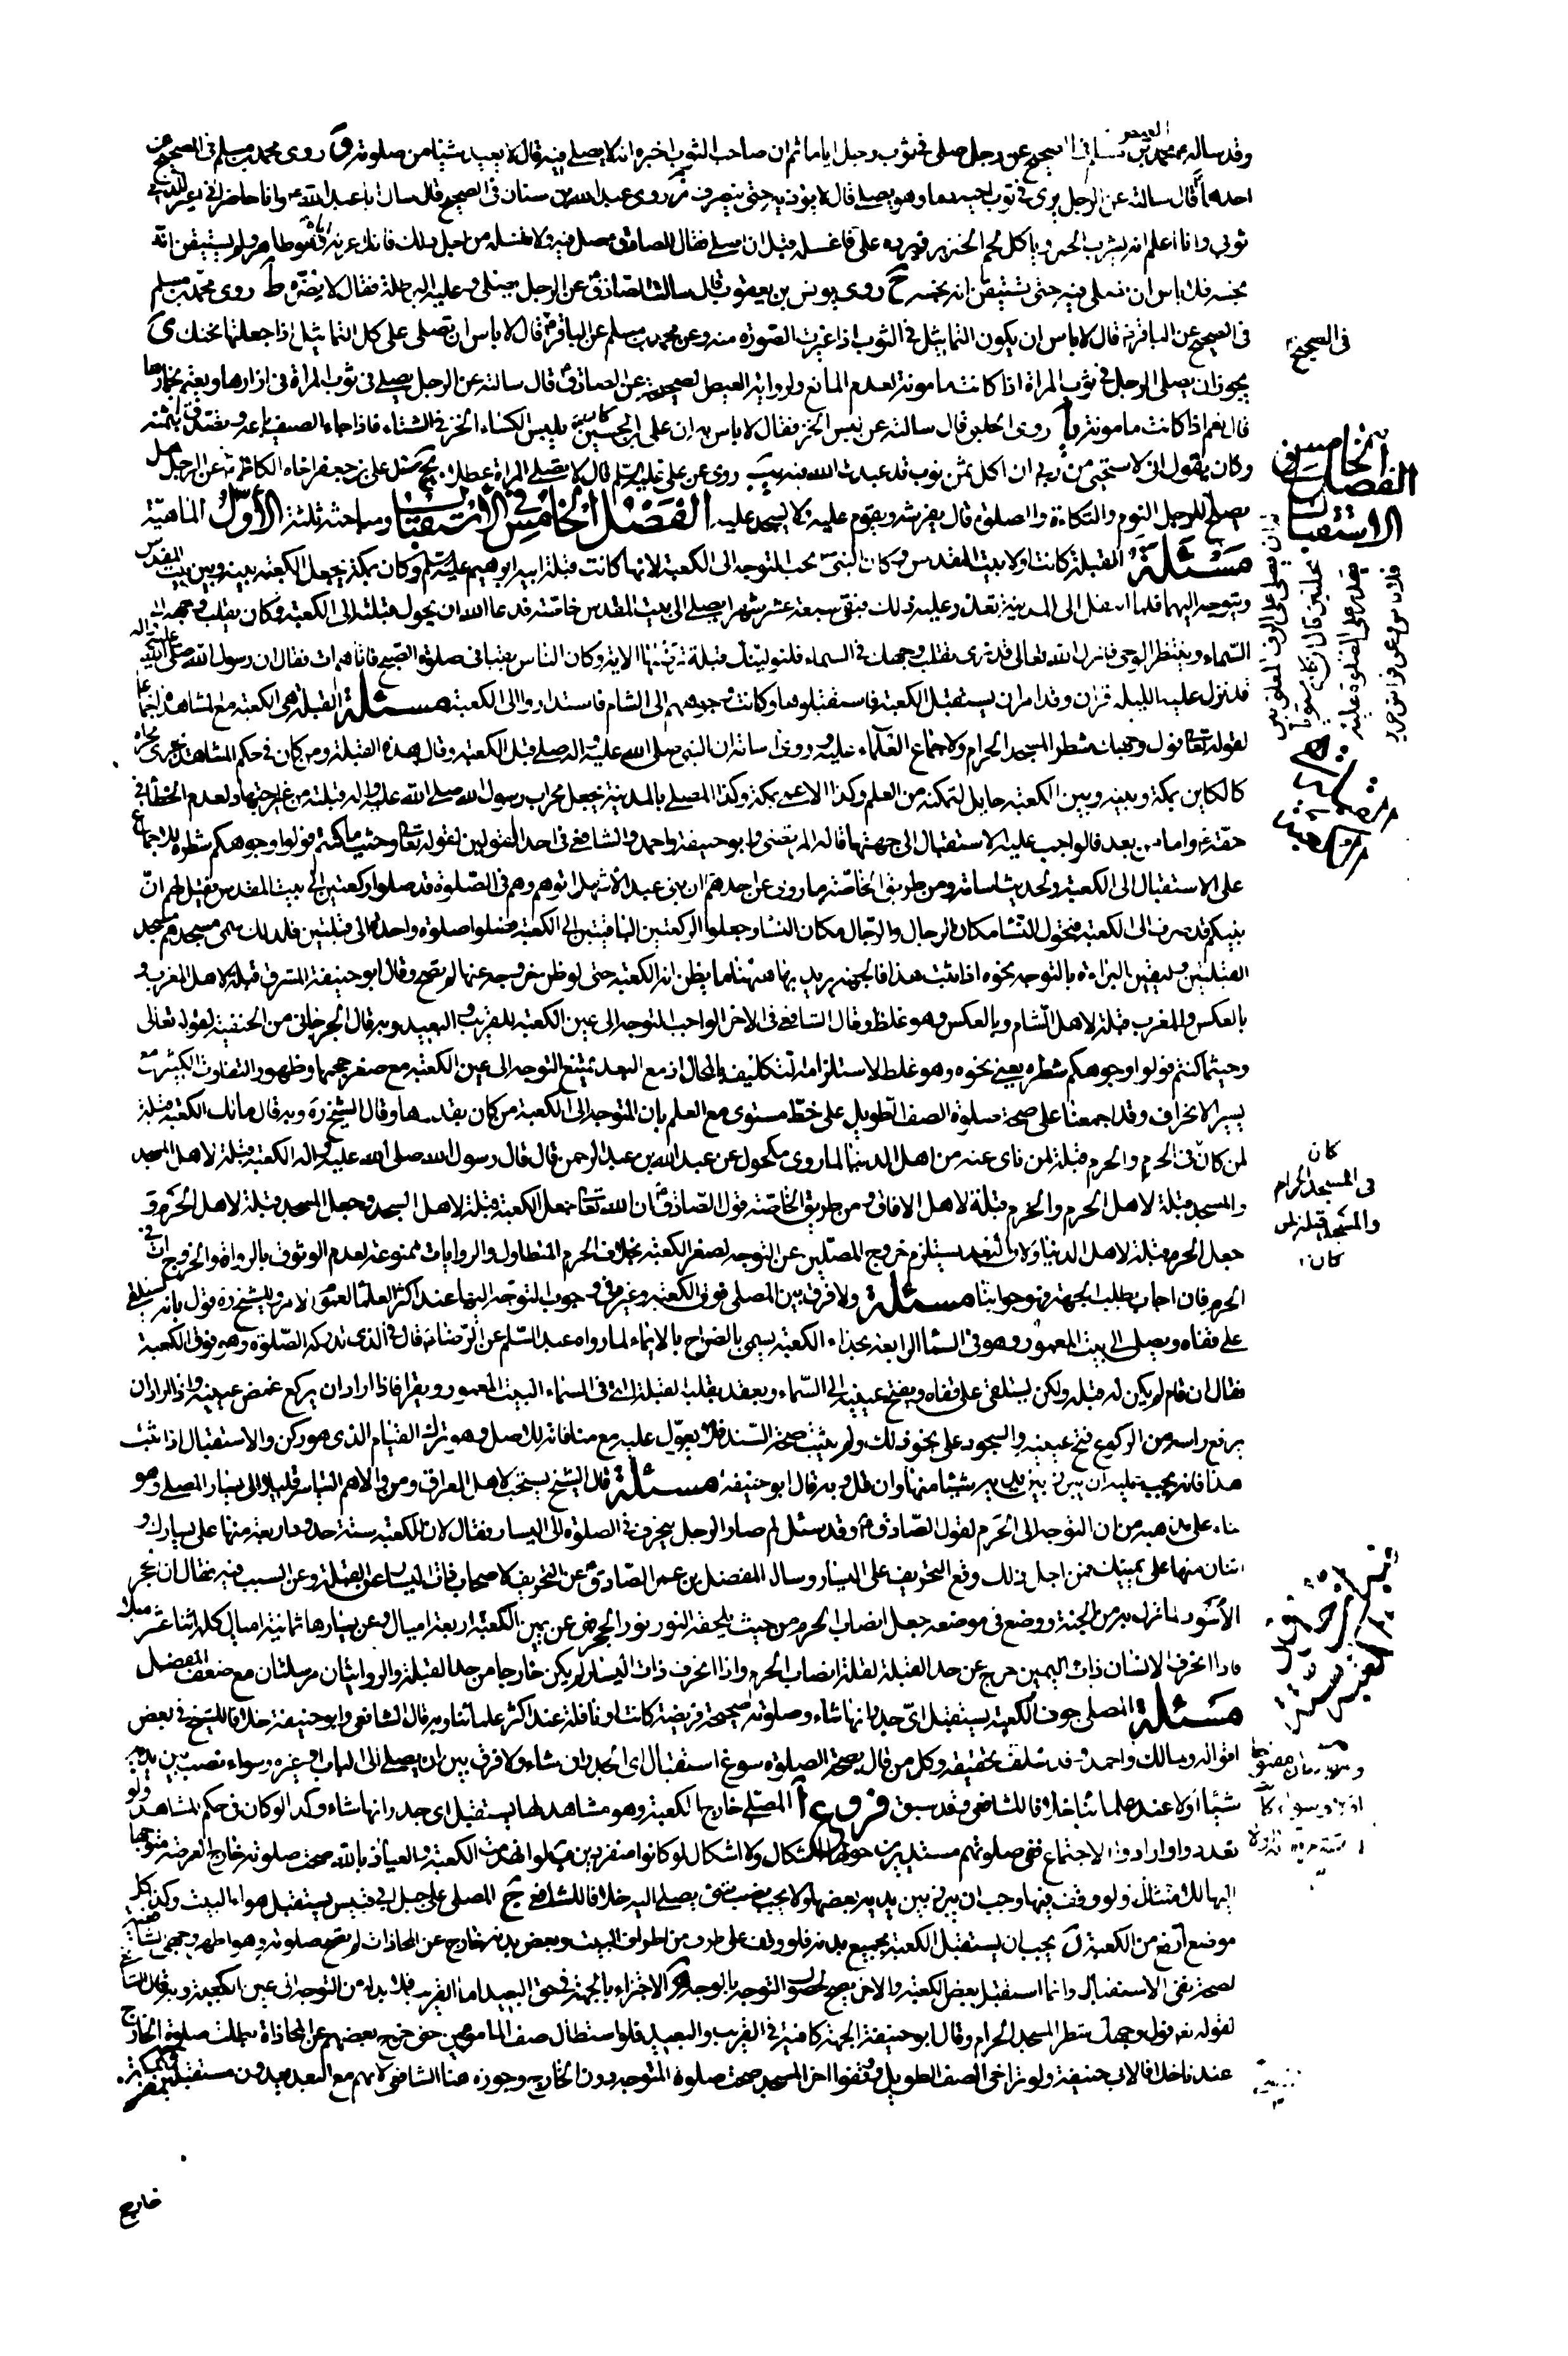 وقد ساله محمد بن مسلم فى الصحيح عن رجل صلى فى ثوب رجل اياما ثم ان صاحب الثوب اخبره انه لا يصلى فيه قال لا يعيد شيئا من صلوته و روى محمد بن مسلم فى الصحيح عن
احدهما قال سالته عن الرجل يرى فى ثوب اخيه دما وهو يصلى قال لا يؤذنه حتى ينصرف ز روى عبد الله بن سنان فى الصحيح قال سال ابا عبد الله وانا حاضر انى اعير الذمى
ثوبى وانا اعلم انه يشرب الخمر وياكل لحم الخنزير فيرده على فاغسله قبل ان اصلى فقال الصادق صل فيه ولا تغسله من اجل ذلك فانك اعرته اياه وهو طاهر ولم يستيقن انه
نجسه فلا باس ان تصلى فيه حتى تستيقن انه نجسه ح روى يونس بن يعقوب قال سالت الصادق عن الرجل يصلى وعليه البرطلة فقال لا يضره ط روى محمد بن مسلم
فى الصحيح عن الباقر قال لا باس ان يكون التماثيل فى الثوب اذا غيرت الصورة منه وعن محمد بن مسلم عن الباقر قال لا باس ان تصلى على كل التماثيل اذا جعلتها تحتك ى
يجوز ان يصلى الرجل فى ثوب المراة اذا كانت مامونة لعدم المانع ولرواية العيص الصحيحة عن الصادق قال سالته عن الرجل يصلى فى ثوب المراة فى ازارها ويعتم بخمارها
قال نعم اذا كانت مامونة يا روى الحلبى قال سالته عن لبس الخز فقال لا باس به ان على بن الحسين كان يلبس الكساء الخز فى الشتاء فاذا جاء الصيف باعه وتصدق بثمنه
وكان يقول انى لاستحيى من ربى ان اكل ثمن ثوب قد عبدت الله فيه يب روى عن على عليه السلم قال لا تصلى المراة عطلا يج سئل على بن جعفر اخاه الكاظم عن الرجل هل
يصلح للرجل النوم والتكاءة والصلوة قال يفترشه ويقوم عليه ولا يسجد عليه الفصل الخامس فى الاستقبال ومباحثه ثلثة الاول الماهية
مسئلة القبلة كانت اولا بيت المقدس وكان النبى يحب التوجه الى الكعبة لانها كانت قبلة ابيه ابراهيم عليه السلم وكان بمكة يجعل الكعبة بينه وبين بيت المقدس
ويتوجه اليهما فلما انتقل الى المدينة تعذر عليه ذلك فبقى سبعة عشر شهرا يصلى الى بيت المقدس خاصة فدعا الله ان يحول قبلته الى الكعبة وكان يقلب وجهه الى
السماء وينتظر الوحى فانزل الله تعالى قد نرى تقلب وجهك فى السماء فلنولينك قبلة ترضيها الاية وكان الناس بقبا فى صلوة الصبح فاتاهم ات فقال ان رسول الله صلى الله عليه واله
قد نزل عليه الليلة قران وقد امر ان يستقبل الكعبة فاستقبلوها وكانت وجوههم الى الشام فاستداروا الى الكعبة مسئلة القبلة هى الكعبة مع المشاهدة اجماعا
لقوله تعالى فول وجهك شطر المسجد الحرام ولاجماع العلماء عليه وروى اسامة ان النبى صلى الله عليه واله صلى قبل الكعبة وقال هذه القبلة ومن كان فى حكم المشاهد يجرى مجراه
كالكاين بمكة وبينه وبين الكعبة حايل لتمكنه من العلم وكذا الاعمى بمكة وكذا المصلى بالمدينة يجعل محراب رسول الله صلى الله عليه واله قبلته من غير اجتهاد لعدم الخطا فى
حقه واما من بعد فالواجب عليه الاستقبال الى جهتها قاله المرتضى وابو حنيفة واحمد والشافعى فى احد القولين لقوله تعالى وحيث ما كنتم فولوا وجوهكم شطره وللاجماع
على الاستقبال الى الكعبة ولحديث اسامة ومن طريق الخاصة ما روى عن احدهما ان بنى عبد الاشهل اتوهم وهم فى الصلوة قد صلوا ركعتين الى بيت المقدس فقيل لهم ان
نبيكم قد صرف الى الكعبة فتحول النساء مكان الرجال والرجال مكان النساء وجعلوا الركعتين الباقيتين الى الكعبة فصلوا صلوة واحدة الى قبلتين فلذلك سمى مسجدهم مسجد
القبلتين وليقين البراءة بالتوجه نحوه اذا ثبت هذا فالجهة يريد بها هيهنا ما يظن انه الكعبة حتى لو ظن خروجه عنها لم يصح وقال ابو حنيفة المشرق قبلة لاهل المغرب و
بالعكس والمغرب قبلة لاهل الشام وبالعكس وهو غلط وقال الشافعى فى الاخر الواجب التوجه الى عين الكعبة للقريب والبعيد وبه قال الجرجانى من الحنفية لقوله تعالى
وحيثما كنتم فولوا وجوهكم شطره يعنى نحوه وهو غلط لاستلزامه التكليف بالمحال اذ مع البعد يمتنع التوجه الى عين الكعبة مع صغر حجمها وظهور التفاوت الكثير مع
يسير الانحراف وقد اجمعنا على صحة صلوة الصف الطويل على خط مستوى مع العلم بان المتوجه الى الكعبة من كان بقدرها وقال الشيخ ره وبه قال مالك الكعبة قبلة
لمن كان فى الحرم والحرم قبلة لمن ناى عنه من اهل الدنيا لما روى مكحول عن عبد الله بن عبد الرحمن قال قال رسول الله صلى الله عليه واله الكعبة قبلة لاهل المسجد
والمسجد قبلة لاهل الحرم والحرم قبلة لاهل الافاق ومن طريق الخاصة قول الصادق ان الله تعالى جعل الكعبة قبلة لاهل المسجد وجعل المسجد قبلة لاهل الحرم و
جعل الحرم قبلة لاهل الدنيا ولان البعد يستلزم خروج المصلين عن التوجه لصغر الكعبة بخلاف الحرم المتطاول والروايات ممنوعة لعدم الوثوق بالرواة والخروج ات فى
الحرم فان اجاب بطلب الجهة فهو جوابنا مسئلة ولا فرق بين المصلى فوق الكعبة وغيره فى وجوب التوجه اليها عند اكثر العلماء لعموم الامر وللشيخ ره قول بانه يستلقى
على قفاه ويصلى الى بيت المعمور وهو فى السماء الرابعة بحذاء الكعبة يسمى بالضراح بالايماء لما رواه عبد السلم عن الرضا قال فى الذى تدركه الصلوة وهو فوق الكعبة
فقال ان قام لم يكن له قبلة ولكن يستلقى على قفاه ويفتح عينيه الى السماء ويعقد بقلبه القبلة التى فى السماء البيت المعمور ويقرا فاذا اراد ان يركع غمض عينيه واذا اراد ان
يرفع راسه من الركوع فتح عينيه والسجود على نحو ذلك ولم يثبت صحة السند فلا يعول عليه مع منافاته للاصل وهو ترك القيام الذى هو ركن والاستقبال اذا ثبت
هذا فانه يجب عليه ان يبرز بين يديه شيئا منها وان قل وبه قال ابو حنيفة مسئلة قال الشيخ يستحب لاهل العراق ومن والاهم التياسر قليلا الى يسار المصلى وهو
بناء على مذهبه من ان التوجه الى الحرم لقول الصادق وقد سئل لم صار الرجل ينحرف فى الصلوة الى اليسار فقال لان للكعبة ستة حدود اربعة منها على يسارك و
اثنان منها على يمينك فمن اجل ذلك وقع التحريف على اليسار وسال المفضل بن عمر الصادق عن التحريف لاصحابنا ذات اليسار عن القبلة وعن السبب فيه فقال ان الحجر
الاسود لما نزل به من الجنة ووضع فى موضعه جعل انصاب الحرم من حيث يلحقه النور نور الحجر فهى عن يمين الكعبة اربعة اميال وعن يسارها ثمانية اميال كله اثنا عشر ميلا
فاذا انحرف الانسان ذات اليمين خرج عن حد القبلة لقلة انصاب الحرم واذا انحرف ذات اليسار لم يكن خارجا من حد القبلة والروايتان مرسلتان مع ضعف المفضل
مسئلة المصلى جوف الكعبة يستقبل اى جدرانها شاء وصلوته صحيحة فريضة كانت او نافلة عند اكثر علمائنا وبه قال الشافعى وابو حنيفة خلافا للشيخ فى بعض
اقواله ومالك واحمد وقد سلف تحقيقه وكل من قال بصحة الصلوة سوغ استقبال اى الجدران شاء ولا فرق بين ان يصلى الى الباب او غيره وسواء نصب بين يديه
شيئا اولا عند علمائنا خلافا للشافعى وقد سبق فروع ا المصلى خارج الكعبة وهو مشاهد لها يستقبل اى جدرانها شاء وكذا لو كان فى حكم المشاهد ولو
تعدد واو ارادوا الاجتماع ففى صلوتهم مستديرين حولها اشكال ولا اشكال لو كانوا منفردين ب لو انهدمت الكعبة والعياذ بالله صحت صلوته خارج العرصة متوجها
اليها للامتثال ولو وقف فيها وجب ان يبرز بين يديه بعضها ولا يجب نصب شئ يصلى اليه خلافا للشافعى ج المصلى على جبل ابى قبيس يستقبل هواء البيت وكذا كل
موضع ارفع من الكعبة د يجب ان يستقبل الكعبة بجميع بدنه فلو وقف على طرف من اطراف البيت وبعض بدنه خارج عن المحاذات لم تصح صلوته وهو اظهر وجهى الشافعية
لصحة نفى الاستقبال وانما استقبل بعض الكعبة والاخر يصح لحصول التوجه بالوجه ه الاجتزاء بالجهة فى حق البعيد اما القريب فلا بد له من التوجه الى عين الكعبة وبه قال الشافعى
لقوله تعالى فول وجهك شطر المسجد الحرام وقال ابو حنيفة الجهة كافية فى القريب والبعيد فلو استطال صف المامومين حتى خرج بعضهم عن المحاذاة بطلت صلوة الخارج
عندنا خلافا لابى حنيفة ولو تراخى الصف الطويل ووقفوا اخر المسجد صحت صلوة المتوجه دون الخارج وجوزه هنا الشافعى لانهم مع البعد يعدون مستقبلين بمكة
خارج
فى الصحيح
الفصل الخامس فى
الاستقبال
كان
فى المسجد الحرام
والمسجد قبلة لمن
كان